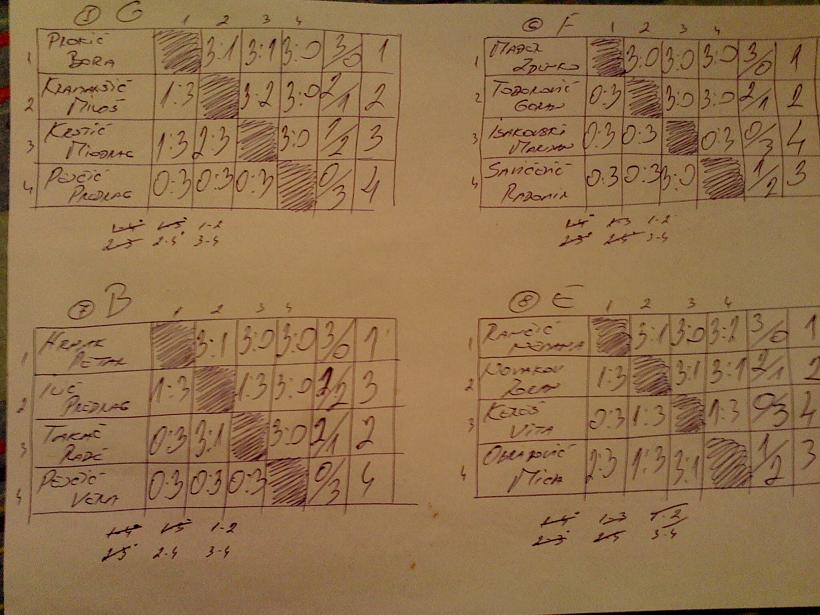 G
1 2 3 4
1 BORA 3:1 3:1 3:0 3/0 1
2 MILOŠ 1:3 3:2 3:0 2/1 2
3 KRSTIĆ MIODRAG 1:3 2:3 3:0 1/2 3
4 PEJČIĆ PREDRAG 0:3 0:3 0:3 0/3 4
1-4 1-3 1-2
2-3 2-4 3-4
6 F
1 2 3 4
1 3:0 3:0 3:0 3/0 1
2 TODOROVIĆ GORAN 0:3 3:0 3:0 2/1 2
3 ISAKOVSKI MARJAN 0:3 0:3 0:3 0/3 4
4 SAVIČEVIĆ RADOMIR 0:3 0:3 3:0 1/2 3
1-4 1-3 1-2
2-3 2-4 3-4
7 B
1 2 3 4
1 HRNJAK PETAR 3:1 3:0 3:0 3/0 1
2 ILIĆ PREDRAG 1:3 1:3 3:0 1/2 3
3 TAKAČ RADE 0:3 3:1 3:0 2/1 2
4 PEJČIĆ VERA 0:3 0:3 0:3 0/3 4
1-4 1-3 1-2
2-3 2-4 3-4
8 E
1 2 3 4
1 RANČIĆ 3:1 3:0 3:2 3/0 1
2 NOVAKOV ZORAN 1:3 3:1 3:1 2/1 2
3 VITA 0:3 1:3 1:3 0/3 4
4 OBRADOVIĆ MIĆA 2:3 1:3 3:1 1/2 3
1-4 1-3 1-2
2-3 2-4 3-4